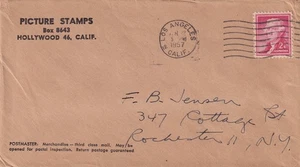 PICTURE STAMPS
Box 8643
HOLLYWOOD 46, CALIF.
LOS ANGELES
PM
1957
CALIF.
2¢
F. B. Jensen
347 Cottage St
Rochester 11, N.Y.
POSTMASTER: Merchandise - Print class mail. May be
opened for postal inspection. Return postage guaranteed